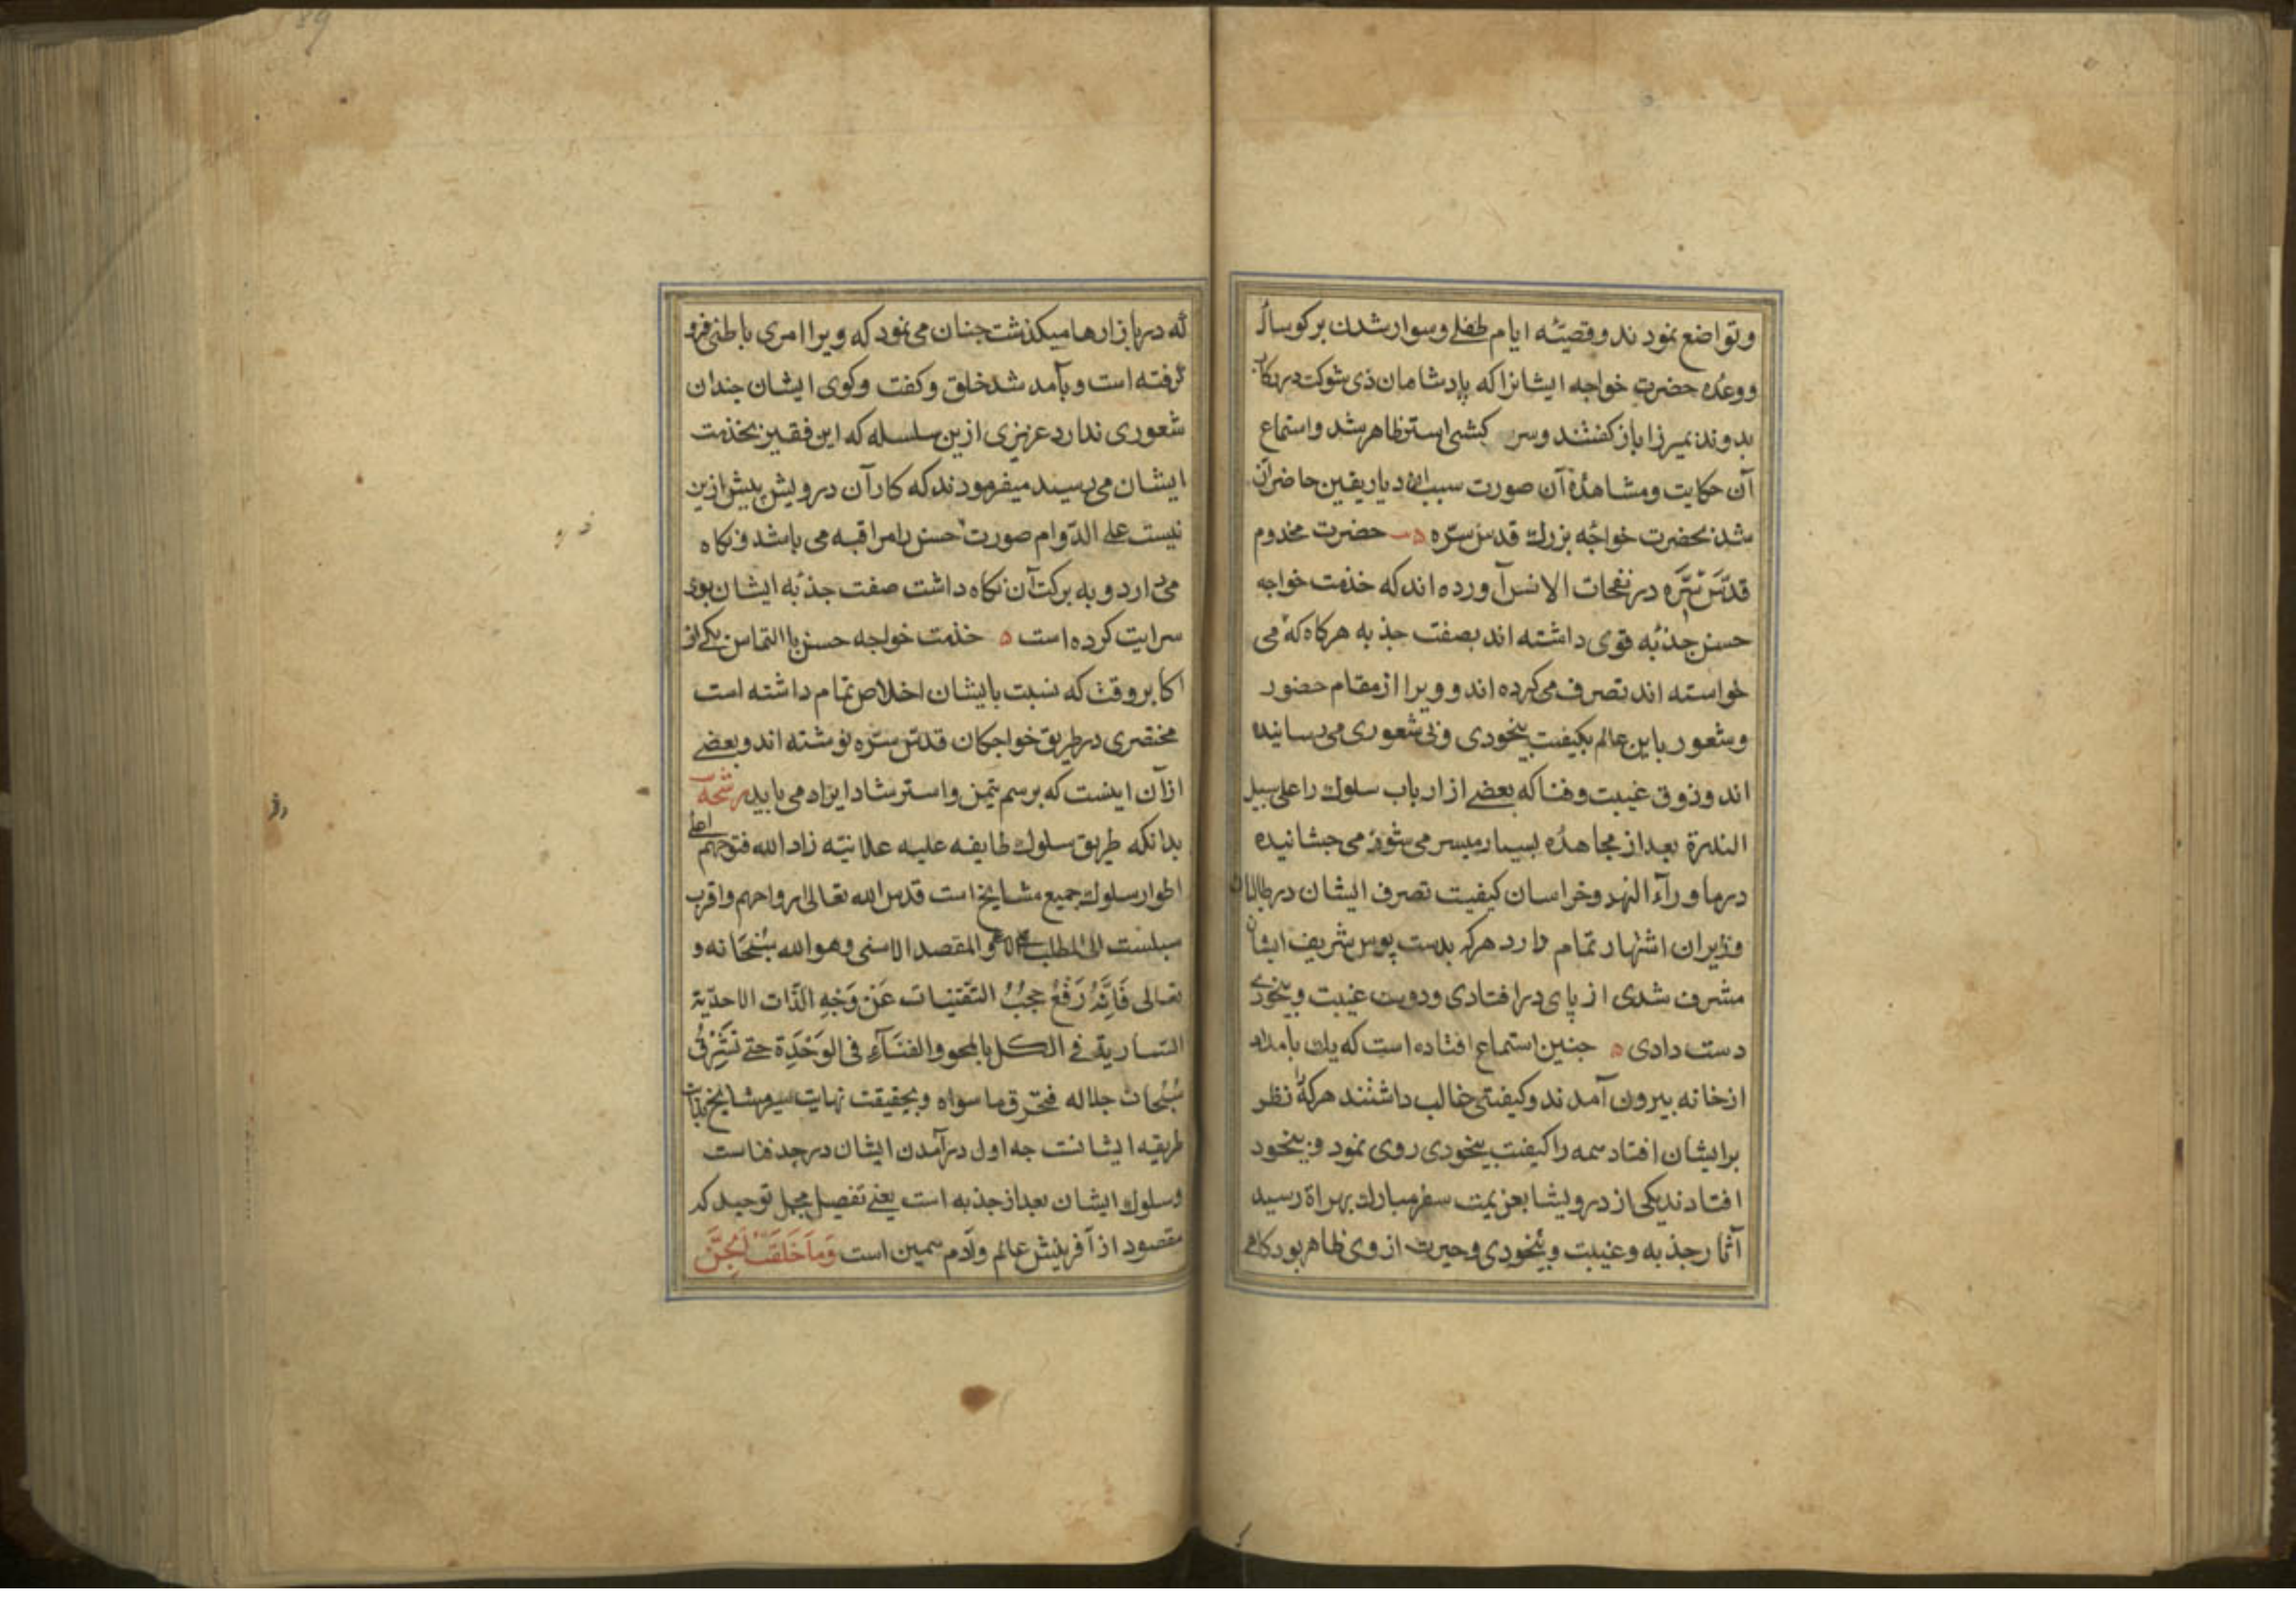 وتواضع نمودند وقصیّه ایام طفلی وسوار شدن بر کوساله
ووعده حضرت خواجه ایشانرا که پادشاهان ذی شوکت در رکاب
بدوند بمیرزا باز کفتند وسر کشی استر ظاهر شد واستماع
آن حکایت ومشاهدهٔ آن صورت سبب ازدیاد یقین حاضران
شد بحضرت خواجه بزرك قدس سرّه حضرت مخدوم
قدّس سرّه در نفحات الانس آورده اند که خذمت خواجه
حسن جذبه قوی داشته اند بصفت جذبه هرکاه که می
خواسته اند تصرف می کرده اند و ویرا از مقام حضور
وشعور باین عالم بکیفیت بیخودی وبی شعوری می رسانیده
اند وذوق غیبت وفنا که بعضے از ارباب سلوك را علی سبیل
الندرة بعد از مجاهدهٔ بسیار میسر می شود می جشانیده
در ما ورآء النهر وخراسان کیفیت تصرف ایشان در طالبان
وزایران اشتهار تمام دارد هرکه بدست بوس شریف ایشان
مشرف شدی از پای در افتادی ودولت غیبت وبیخودی
دست دادی ه جنین استماع افتاده است که یك بامداد
از خانه بیرون آمدند وکیفیتی غالب داشتند هرکه را نظر
بر ایشان افتاد همه را کیفیت بیخودی روی نمود وبیخود
افتادند یکی از درویشان بعزیمت سفر مبارك بهراة رسید
آثار جذبه وغیبت وبیخودی وحیرت از وی ظاهر بود کاهی
که در بازارها میکذشت جنان می نمود که ویرا امری باطنی فرو
کرفته است وبآمد شد خلق وکفت وکوی ایشان جندان
شعوری ندارد عزیزی ازین سلسله که این فقیر بخذمت
ایشان می رسید میفرمودند که کار آن درویش بیش ازین
نیست علی الدّوام صورت حسن را مراقبه می باشد ونکاه
می دارد و به برکت آن نکاه داشت صفت جذبه ایشان بوی
سرایت کرده است ه خذمت خواجه حسن با التماس یکی از
اکابر وقت که نسبت بایشان اخلاص تمام داشته است
مختصری در طریق خواجکان قدس سرّه نوشته اند وبعضے
از آن اینست که برسم تیمن واسترشاد ایراد می یابد رشحه
بدانکه طریق سلوك طایفه علیه علائیّه زاد الله فتوحهم اعلی
اطوار سلوك جمیع مشایخ است قدس الله تعالی ارواحهم واقرب
سبلست الی المطلب الاعلی والمقصد الاسنی وهو الله سُبْحَانه و
تعالی فَاِنَّهُ رَفْعُ حُجُبُ التعیّنات عَنْ وَجْهِ الذّات الاحدیّة
السّاریة فی الکل بالمحو والفنَآءِ فی الوَحْدَة حتی تشْرِقُ
سُبُحات جلاله فتحرق ما سواه وبحقیقت نهایت سیر مشایخ بدایت
طریقه ایشانست جه اول درآمدن ایشان در حد فناست
وسلوك ایشان بعد از جذبه است یعنی تفصیل مجمل توحید که
مقصود از آفرینش عالم وآدم همین است وَمَا خَلَقْتُ الجِنَّ